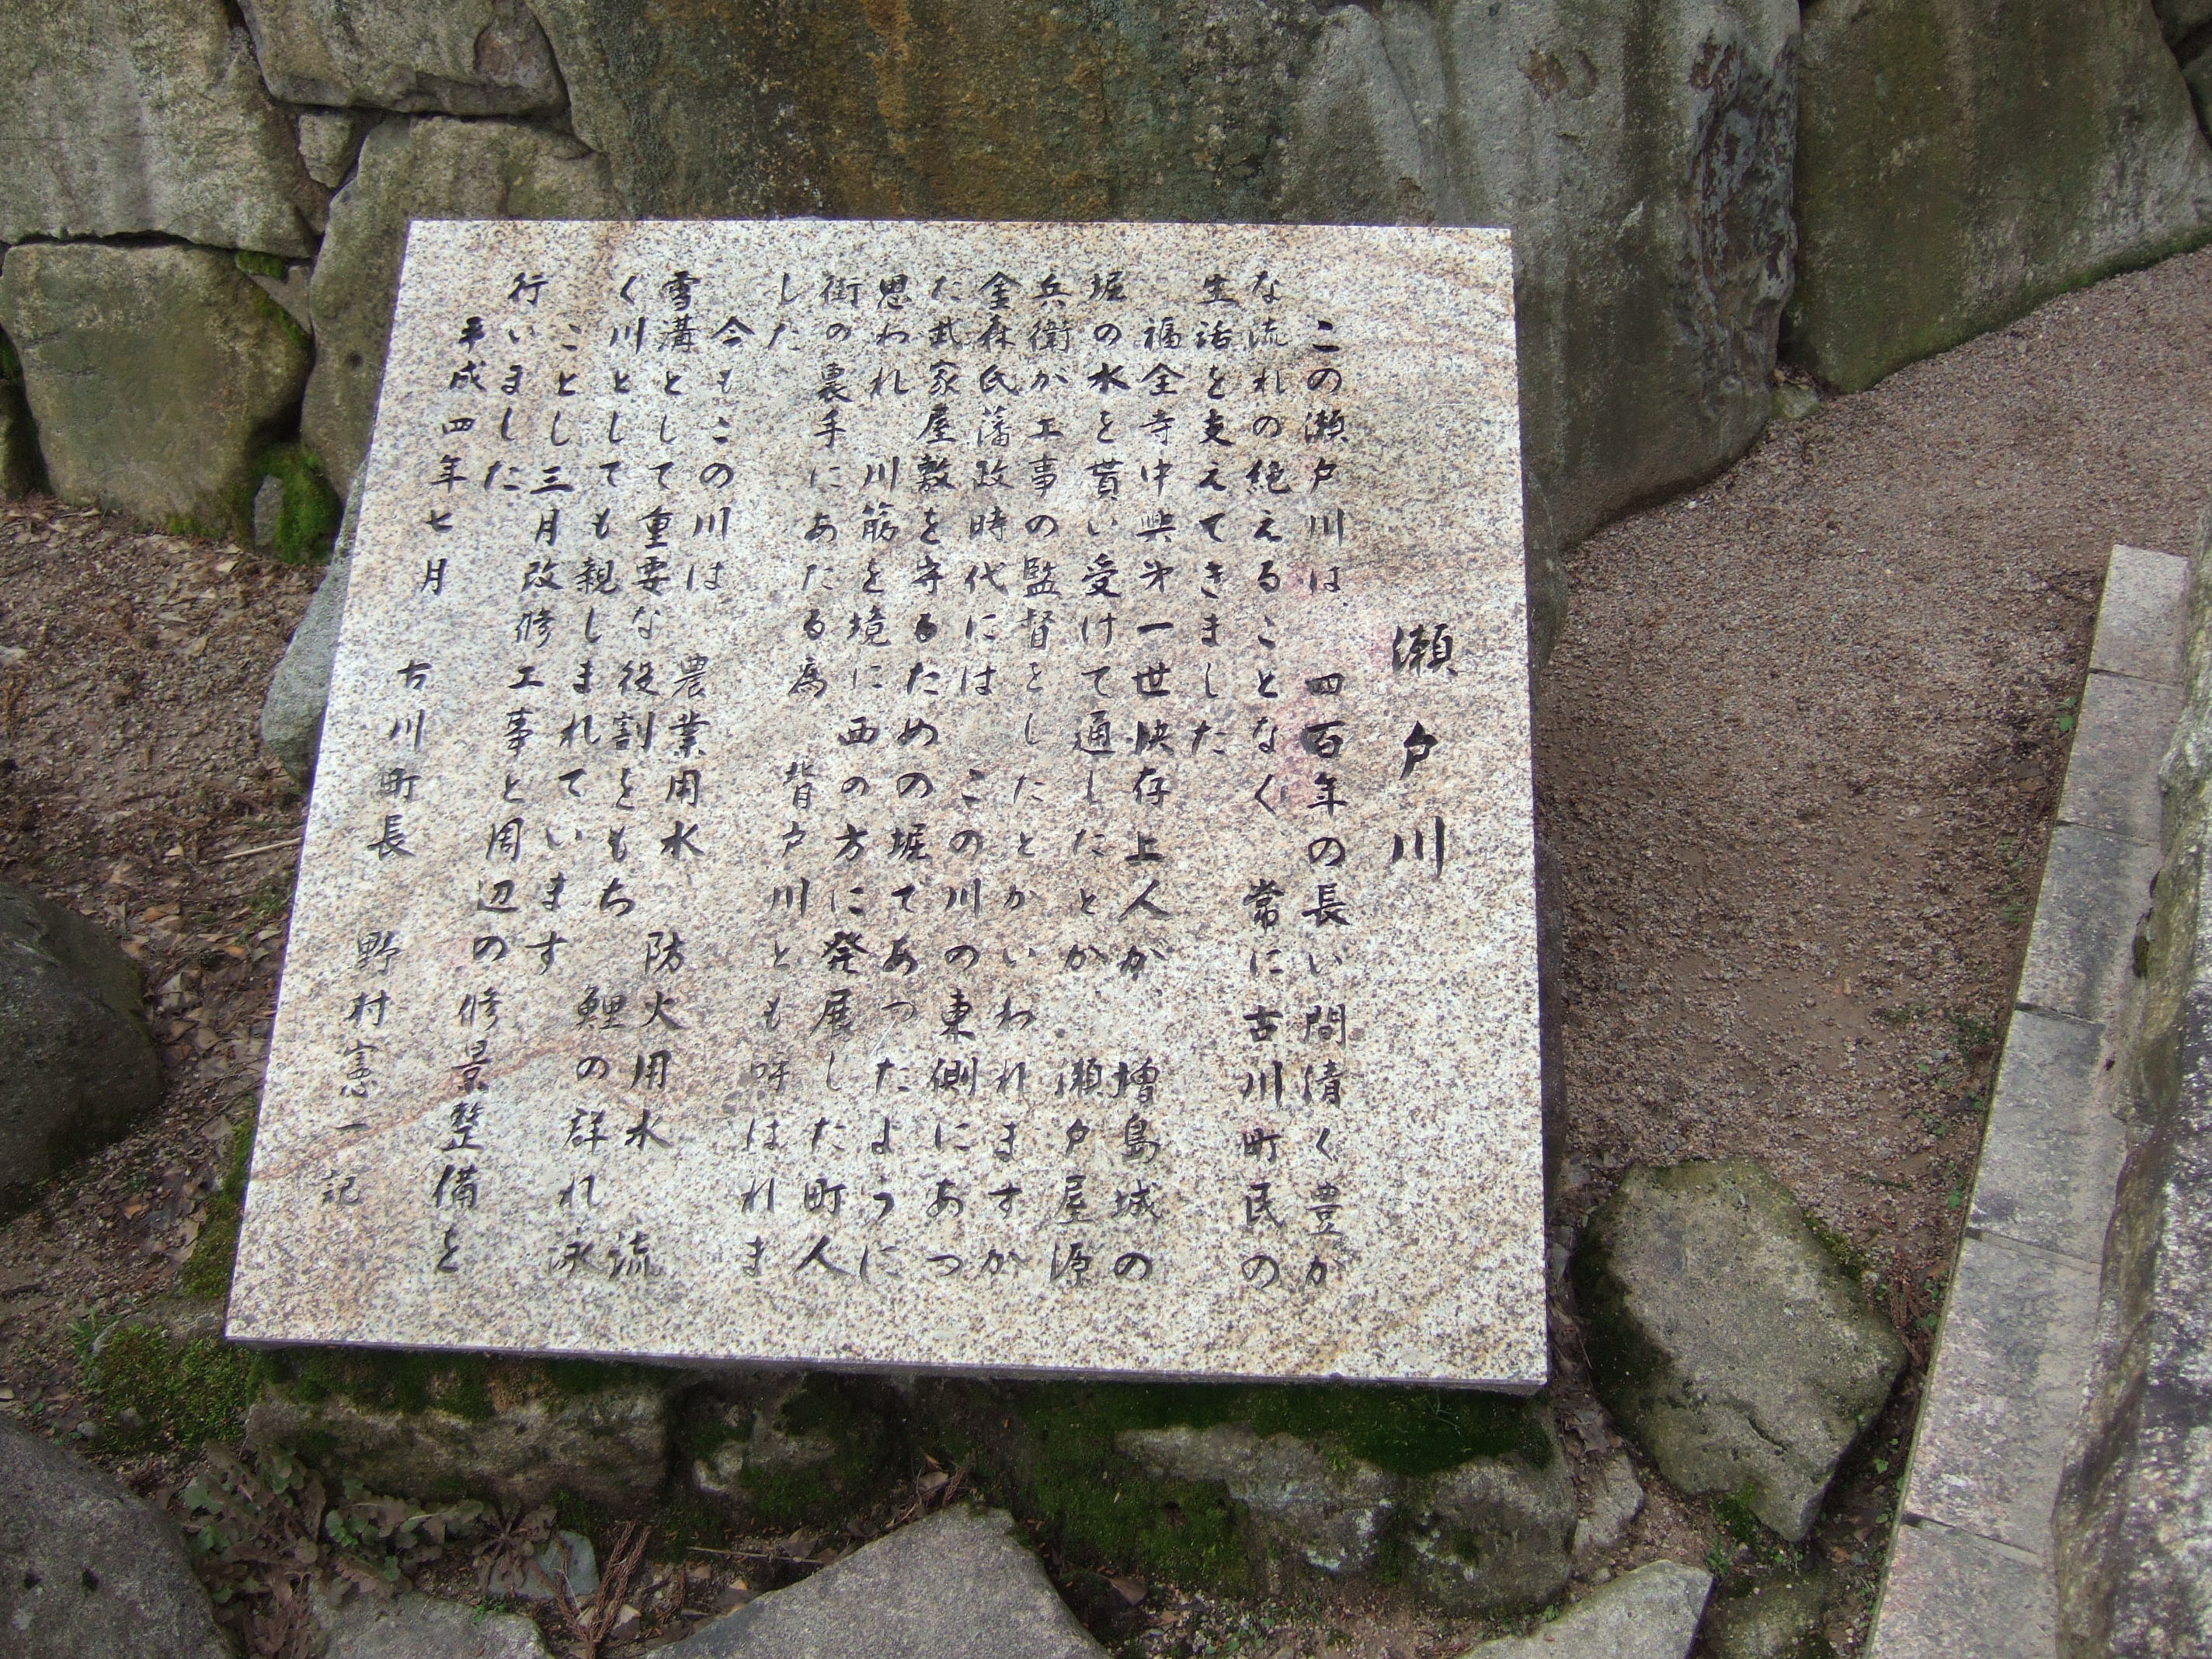 瀬戸川
この瀬戸川は、四百年の長い間清く豊か
な流れの絶えることなく 常に古川町民の
生活を支えてきました
福全寺中興第一世快存上人が 増島城の
堀の水を貰い受けて通したとか 瀬戸屋源
兵衛が工事の監督をしたとかいわれますが
金森氏藩政時代には この川の東側にあつ
た武家屋敷を守るための堀であつたように
思われ 川筋を境に西の方に発展した町人
街の裏手にあたる為 背戸川とも呼ばれま
した
今もこの川は 農業用水 防火用水 流
雪溝として重要な役割をもち 鯉の群れ泳
ぐ川としても親しまれています
ことし三月改修工事と周辺の修景整備を
行いました
平成四年七月
古川町長 野村憲一 記